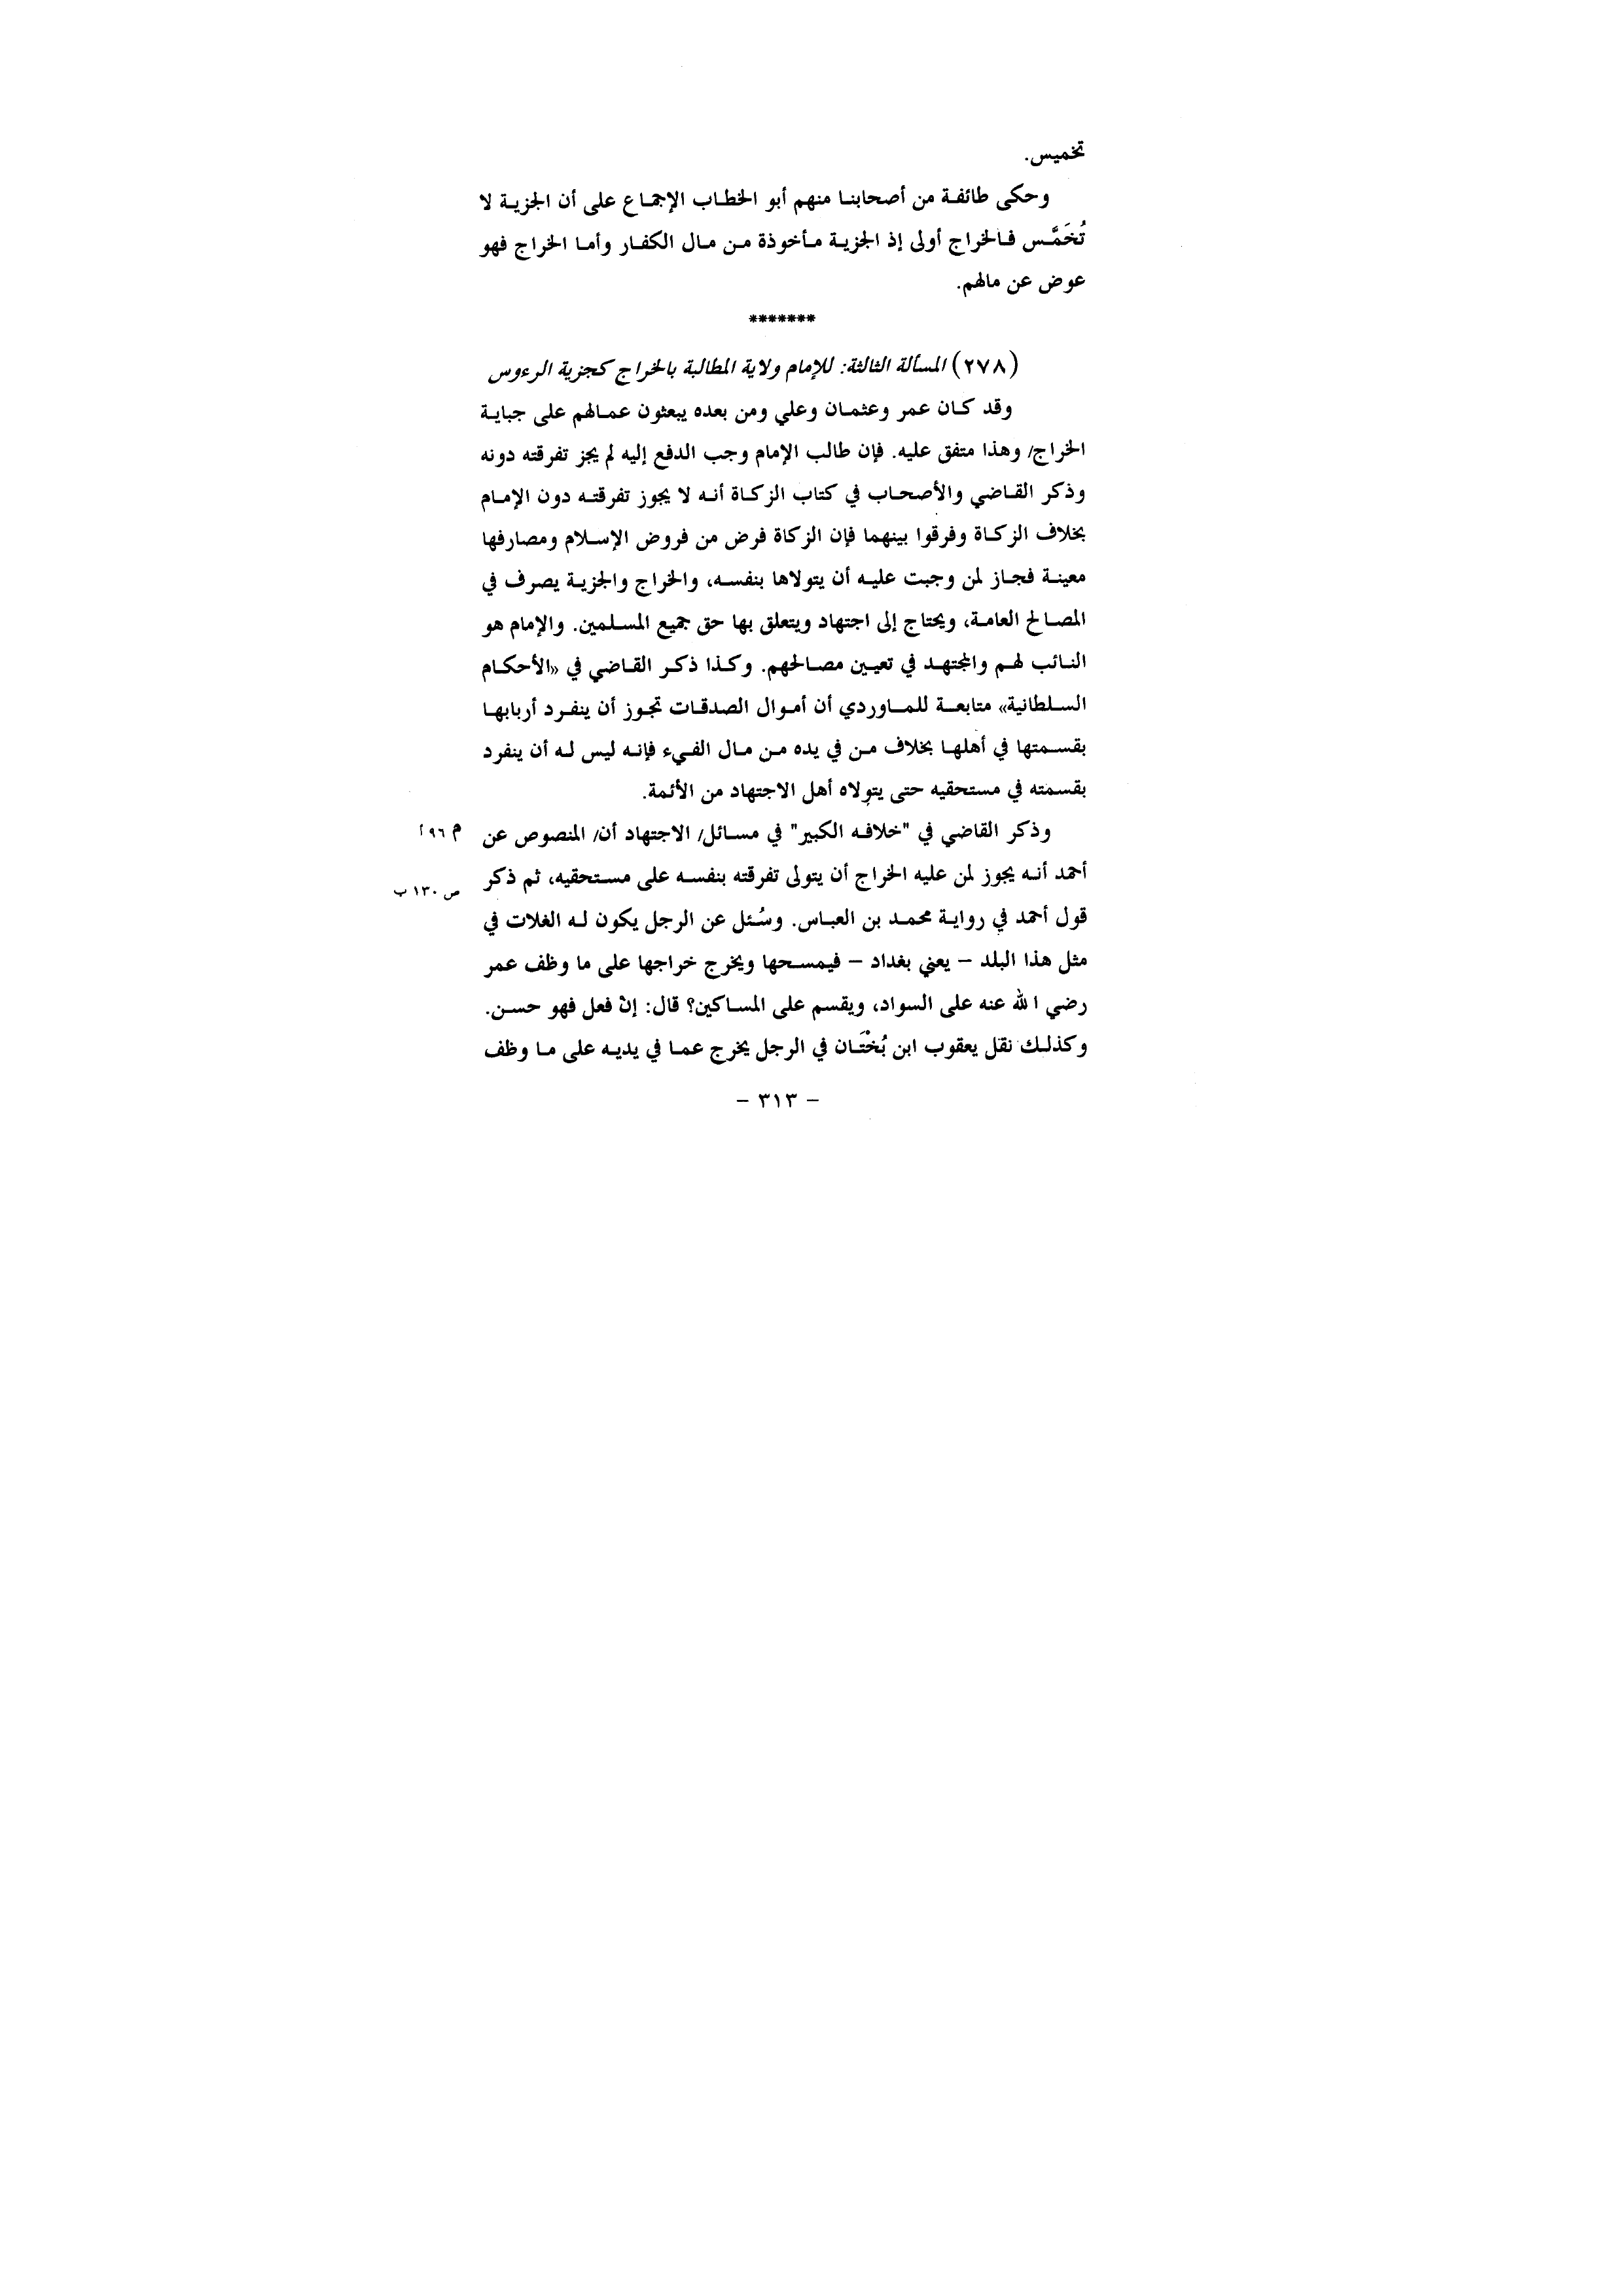 تخميس.
وحكى طائفة من أصحابنا منهم أبو الخطاب الإجماع على أن الجزية لا
تُخَمَّس فالخراج أولى إذ الجزية مأخوذة من مال الكفار وأما الخراج فهو
عوض عن مالهم.
*******
(٢٧٨) المسألة الثالثة: للإمام ولاية المطالبة بالخراج كجزية الرءوس
وقد كان عمر وعثمان وعلي ومن بعده يبعثون عمالهم على جباية
الخراج/ وهذا متفق عليه. فإن طالب الإمام وجب الدفع إليه لم يجز تفرقته دونه
وذكر القاضي والأصحاب في كتاب الزكاة أنه لا يجوز تفرقته دون الإمام
بخلاف الزكاة وفرقوا بينهما فإن الزكاة فرض من فروض الإسلام ومصارفها
معينة فجاز لمن وجبت عليه أن يتولاها بنفسه، والخراج والجزية يصرف في
المصالح العامة، ويحتاج إلى اجتهاد ويتعلق بها حق جميع المسلمين. والإمام هو
النائب لهم والمجتهد في تعيين مصالحهم. وكذا ذكر القاضي في «الأحكام
السلطانية» متابعة للماوردي أن أموال الصدقات تجوز أن ينفرد أربابها
بقسمتها في أهلها بخلاف من في يده من مال الفيء فإنه ليس له أن ينفرد
بقسمته في مستحقيه حتى يتولاه أهل الاجتهاد من الأئمة.
وذكر القاضي في "خلافه الكبير" في مسائل/ الاجتهاد أن/ المنصوص عن
م ٩٦ أ
أحمد أنه يجوز لمن عليه الخراج أن يتولى تفرقته بنفسه على مستحقيه، ثم ذكر
ص ١٣٠ ب
قول أحمد في رواية محمد بن العباس. وسُئل عن الرجل يكون له الغلات في
مثل هذا البلد – يعني بغداد – فيمسحها ويخرج خراجها على ما وظف عمر
رضي الله عنه على السواد، ويقسم على المساكين؟ قال: إن فعل فهو حسن.
وكذلك نقل يعقوب ابن بُخْتَان في الرجل يخرج عما في يديه على ما وظف
– ٣١٣ –